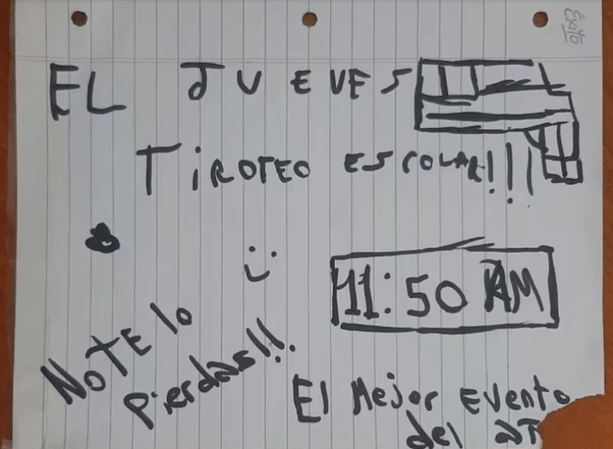 Éxito
EL JUEVES
TIROTEO ESCOLAR!!!
11:50 AM
NO TE lo
pierdas!!.
El Mejor Evento
del